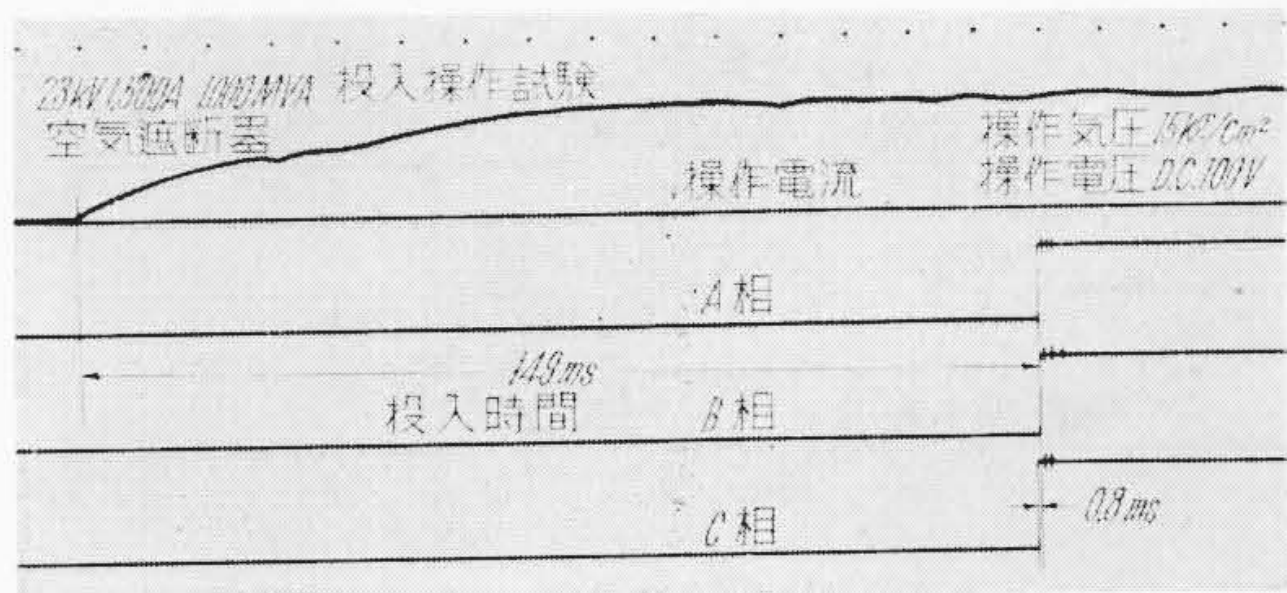 23kV 1,500A 1,000MVA 投入操作試験
空気遮断器
操作気圧 15kg/cm²
操作電流
操作電圧 D.C.100V
A相
149ms
投入時間
B相
0.8ms
C相